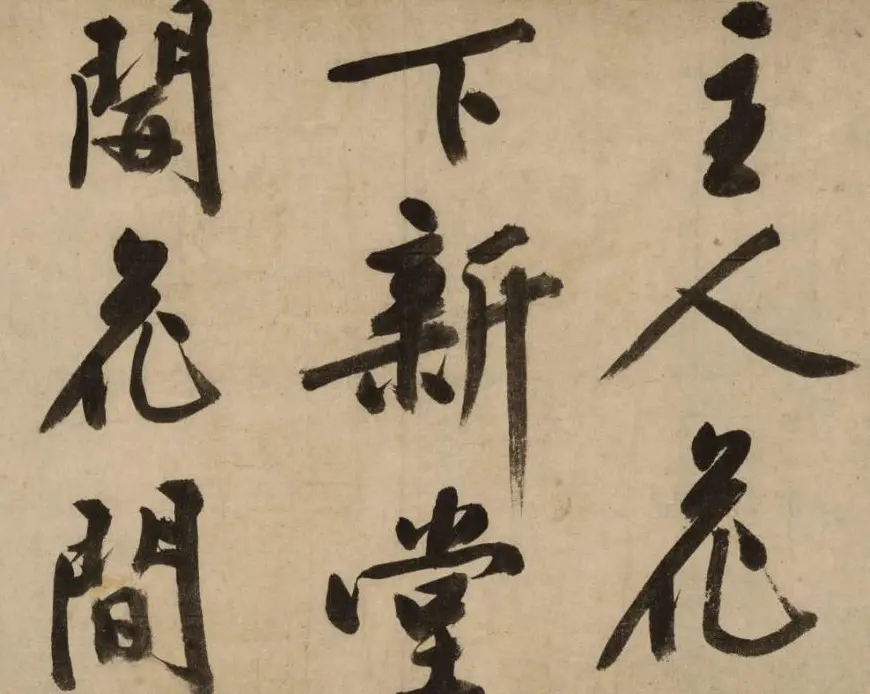 主人花
下新堂
花間